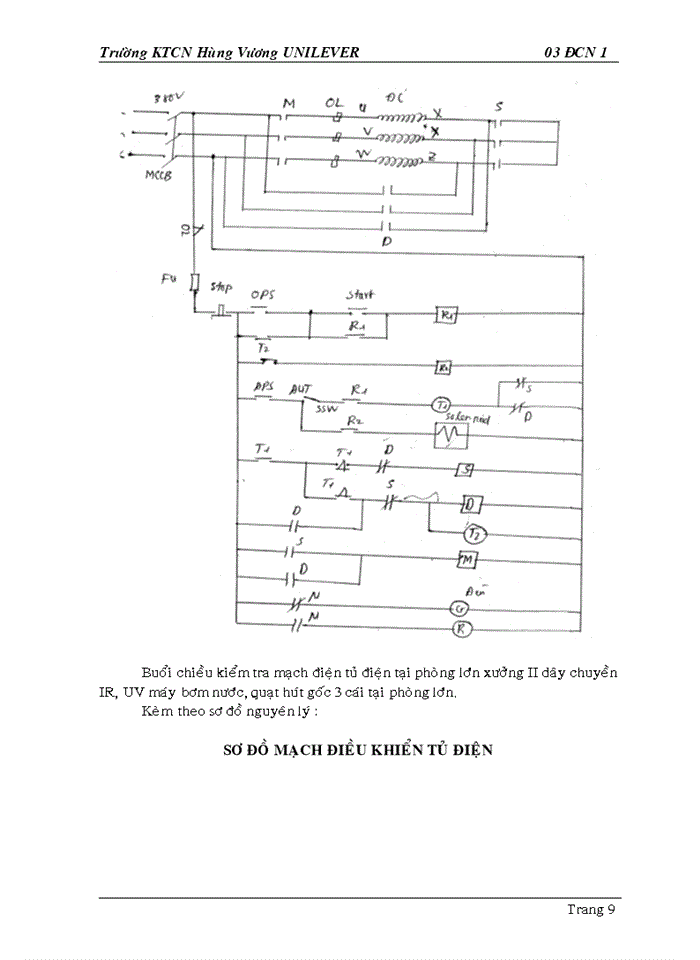 Trường KTCN Hùng Vương UNILEVER 03 ĐCN 1
380V M OL U ĐC X S
V X
W Z
MCCB
D
FU Stop OPS Start R1
R1
T2
R2
APS AUT SSW R1 T1 S
D
R2 Solenoid
T1 T1 D S
T1 S D
D T2
S M
D
Đèn
M Gr
M R
Buổi chiều kiểm tra mạch điện tủ điện tại phòng lớn xưởng II dây chuyền
IR, UV máy bơm nước, quạt hút gốc 3 cái tại phòng lớn.
Kèm theo sơ đồ nguyên lý :
SƠ ĐỒ MẠCH ĐIỀU KHIỂN TỦ ĐIỆN
Trang 9